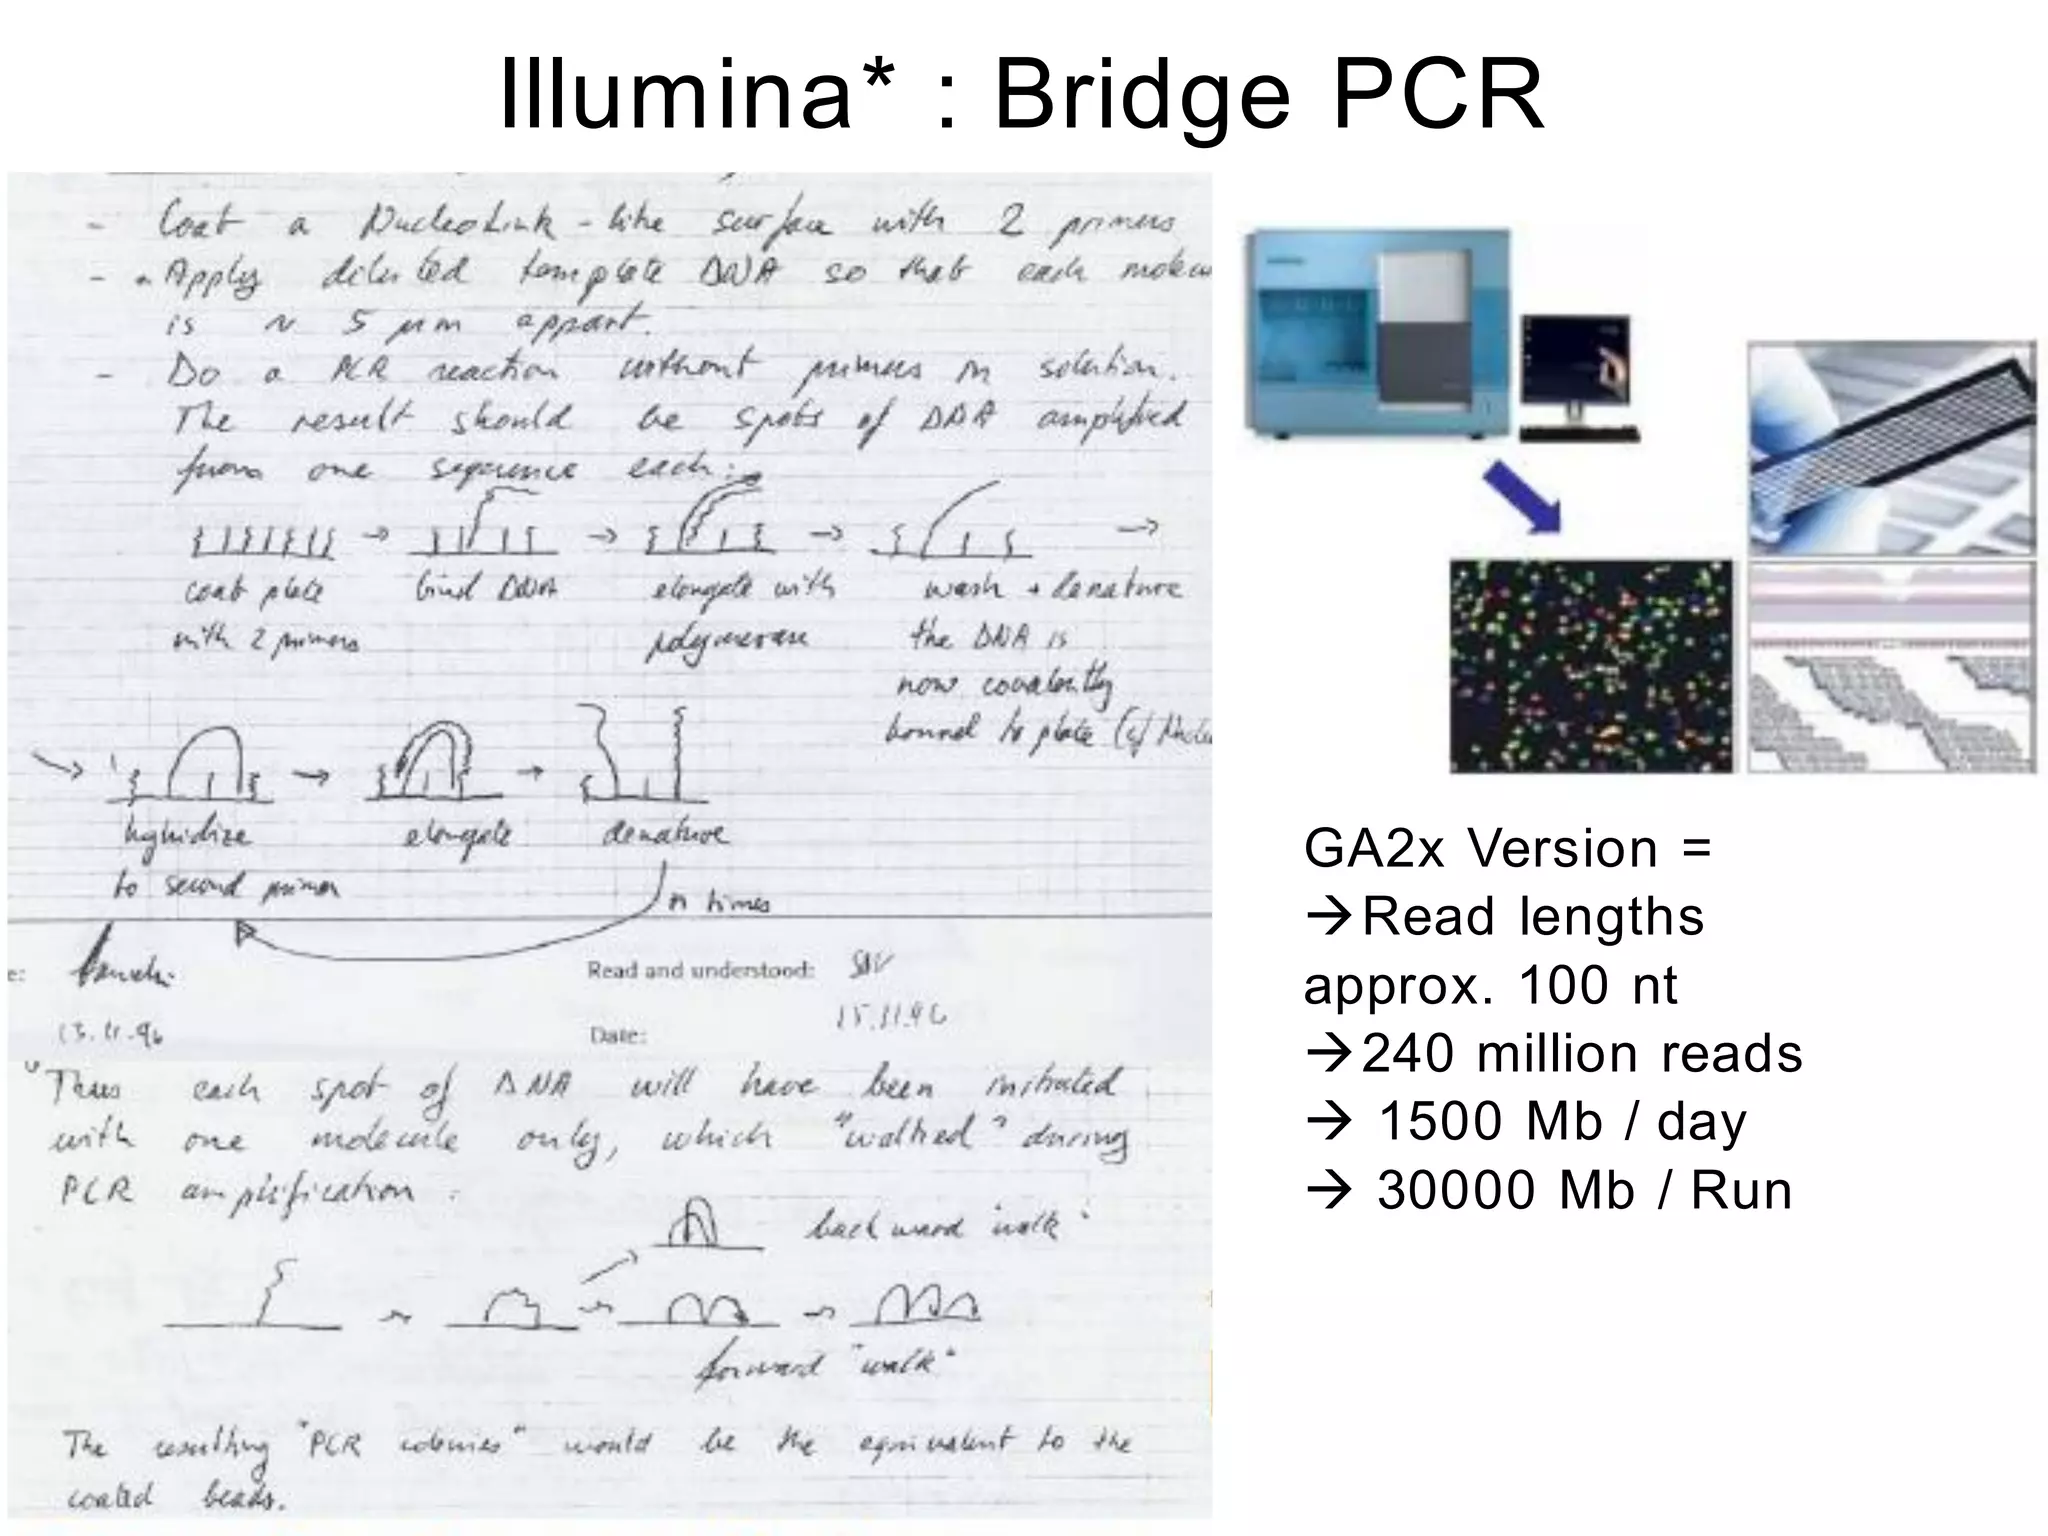 Illumina* : Bridge PCR
- Coat a NucleoLink-like surface with 2 primers
- Apply diluted template DNA so that each molecu
is ~ 5 µm appart.
- Do a PCR reaction without primers in solution.
The result should be spots of DNA amplified
from one sequence each:
coat plate
with 2 primers
bind DNA
elongate with
polymerase
wash + denature
the DNA is
now covalently
bound to plate (cf Nucleo
hybridize
to second primer
elongate
denature
n times
e:
13.11.96
Read and understood:
Date:
15.11.96
"Thus each spot of DNA will have been initiated
with one molecule only, which "walked" during
PCR amplification:
backward "walk"
forward "walk"
The resulting "PCR colonies" would be the equivalent to the
coated beads.
GA2x Version =
→Read lengths
approx. 100 nt
→240 million reads
→ 1500 Mb / day
→ 30000 Mb / Run